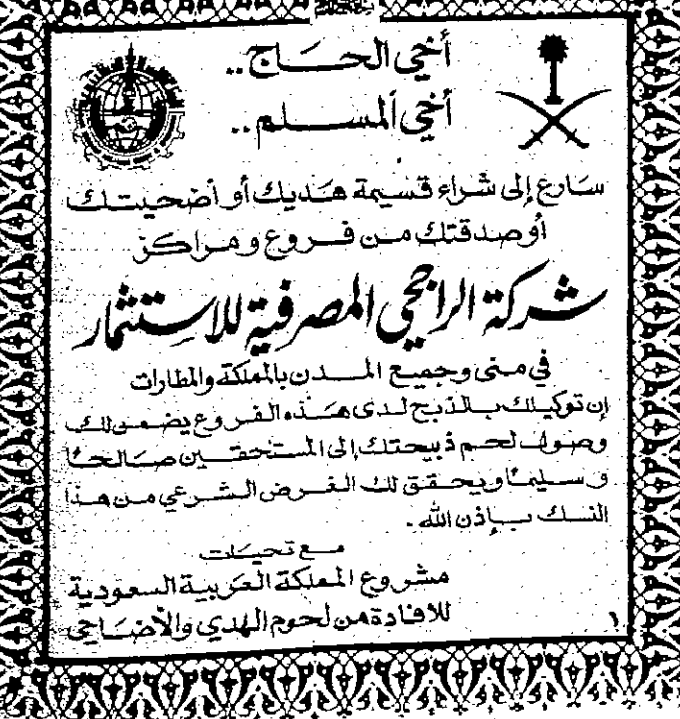 أخي الحاج ..
أخي المسلم ..
سارع إلى شراء قسيمة هديك أو أضحيتك
أو صدقتك من فروع ومراكز
شركة الراجحي المصرفية للاستثمار
في منى وجميع المدن بالمملكة والمطارات
إن توكيلك بالذبح لدى هذه الفروع يضمن لك
وصول لحم ذبيحتك إلى المستحقين صالحاً
وسليماً ويحقق لك الغرض الشرعي من هذا
النسك بإذن الله .
مع تحيات
مشروع المملكة العربية السعودية
للافادة من لحوم الهدي والأضاحي
١